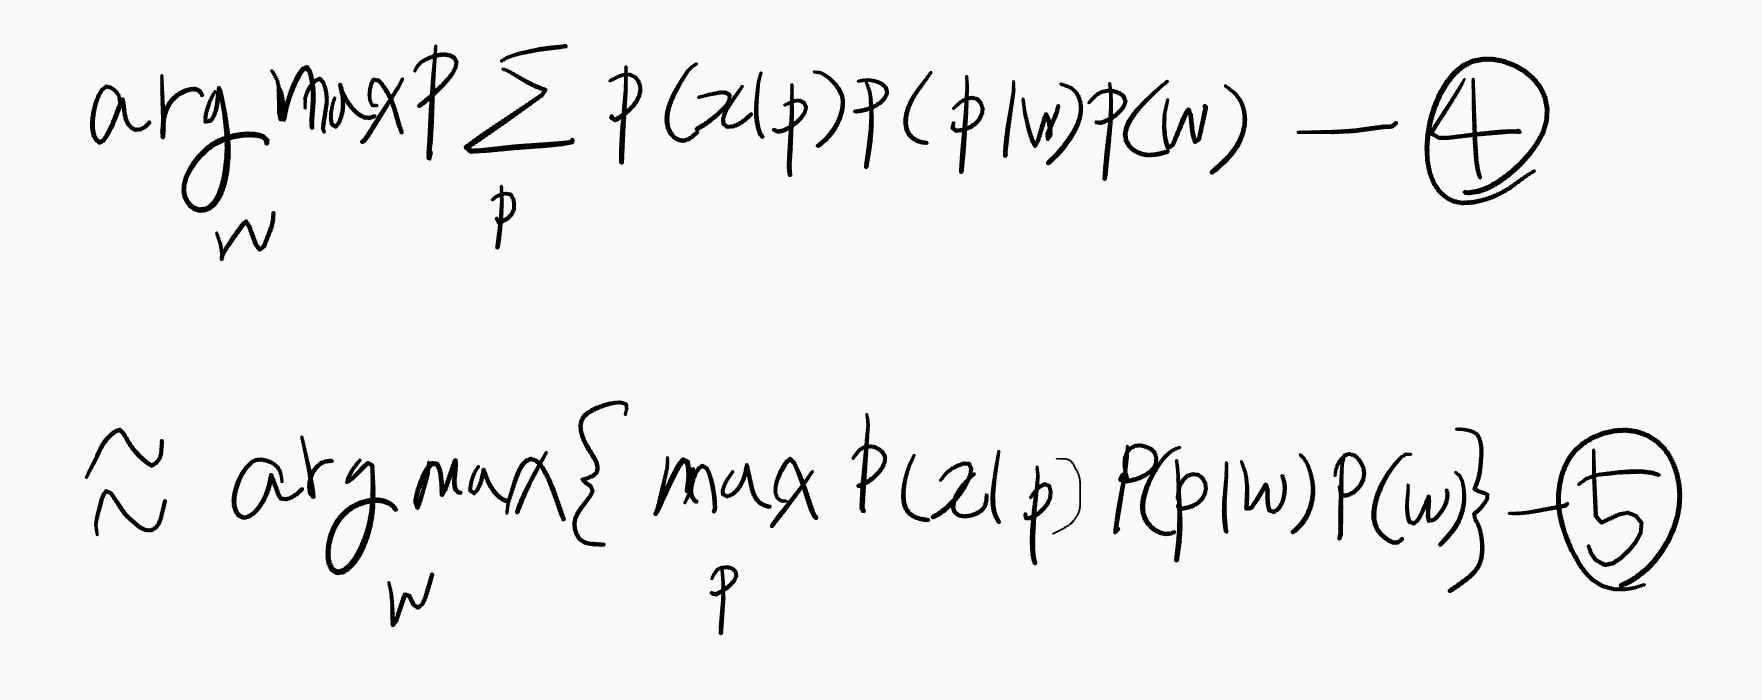 arg max_w P Σ_p P(x|p)P(p|w)P(w) — ④
≈ arg max_w { max_p P(x|p) P(p|w) P(w)} — ⑤